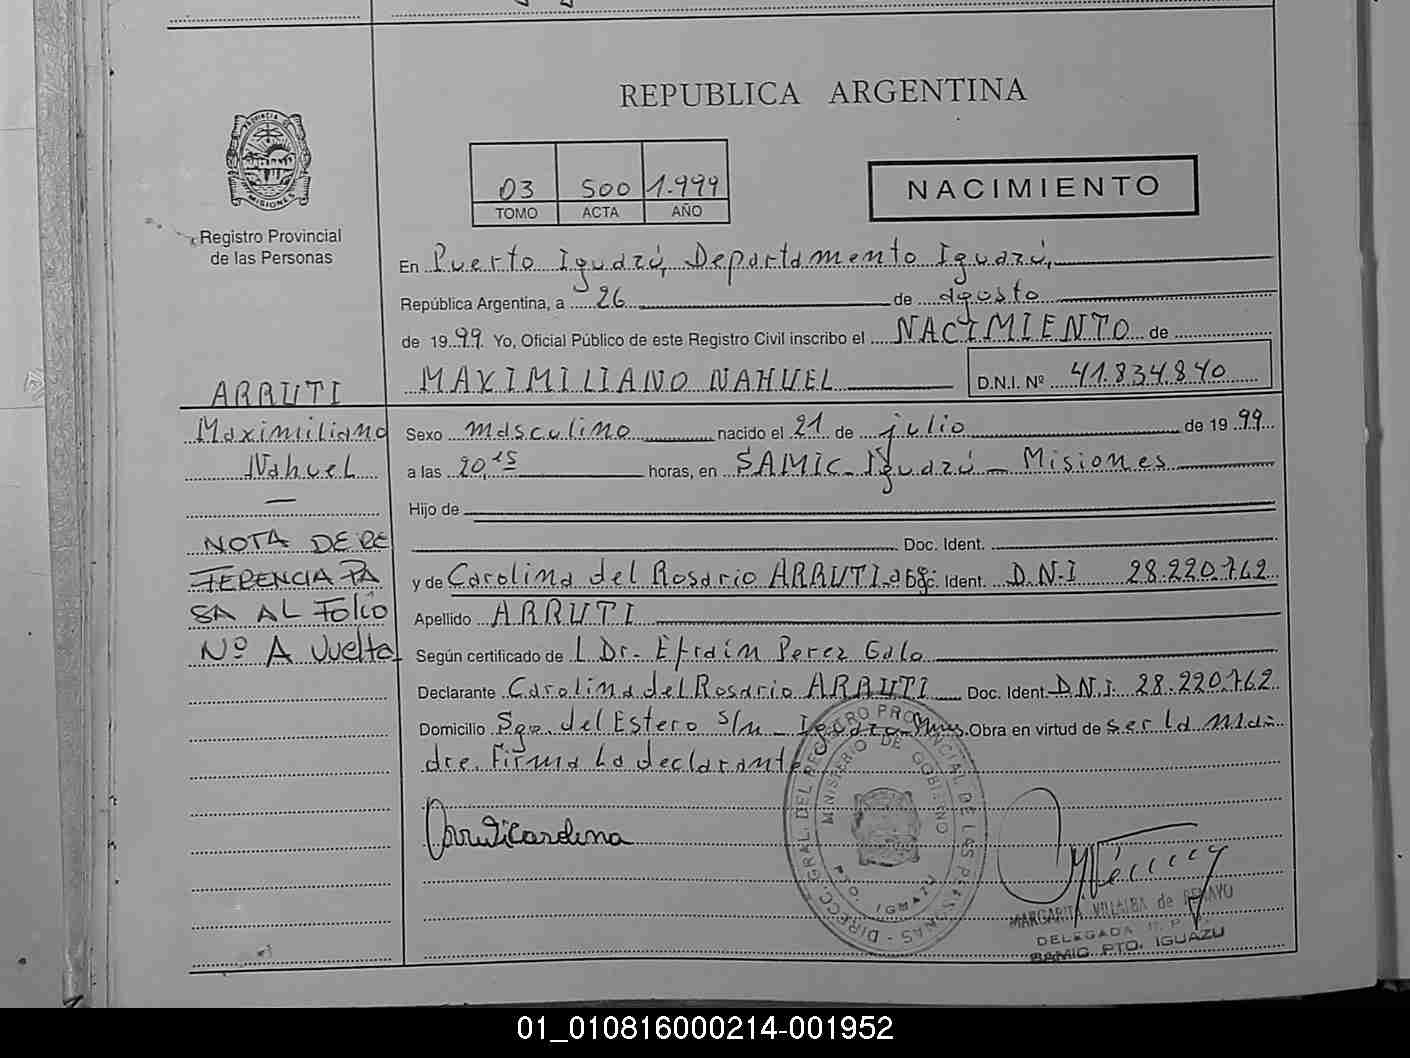 REPUBLICA ARGENTINA
PROVINCIA DE
MISIONES
Registro Provincial
de las Personas
03 500 1.999
TOMO ACTA AÑO
NACIMIENTO
En Puerto Iguazú, Departamento Iguazú,
República Argentina, a 26 de agosto
de 1999 Yo, Oficial Público de este Registro Civil inscribo el NACIMIENTO de
MAXIMILIANO NAHUEL D.N.I. Nº 41.834.840
ARRUTI
Maximiliano
Nahuel
—
NOTA DE RE
FERENCIA PA
SA AL FOLIO
Nº A Vuelta
Sexo masculino nacido el 21 de julio de 1999
a las 20,15 horas, en SAMIC-Iguazú - Misiones
Hijo de
Doc. Ident.
y de Carolina del Rosario ARRUTI Doc. Ident. D.N.I 28.220.762
Apellido ARRUTI
Según certificado de L Dr. Efraín Perez Galo
Declarante Carolina del Rosario ARRUTI Doc. Ident. D.N.I. 28.220.762
Domicilio Sgo. del Estero s/n - Iguazú - Mnes. Obra en virtud de ser la ma-
dre. Firma la declarante
Arruti Carolina
DIRECC. GRAL. DEL REGISTRO PROVINCIAL DE LAS PERSONAS
MINISTERIO DE GOBIERNO
PTO. IGUAZU
MARGARITA VILLALBA de
DELEGADA R. P.
SAMIC PTO. IGUAZU
01_010816000214-001952